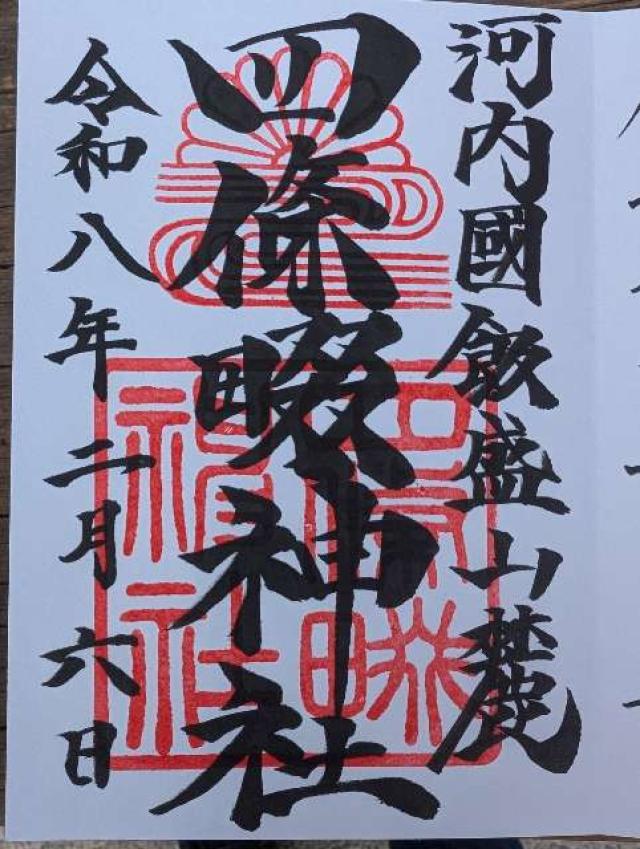 河内國飯盛山麓
四條畷神社
令和八年二月六日